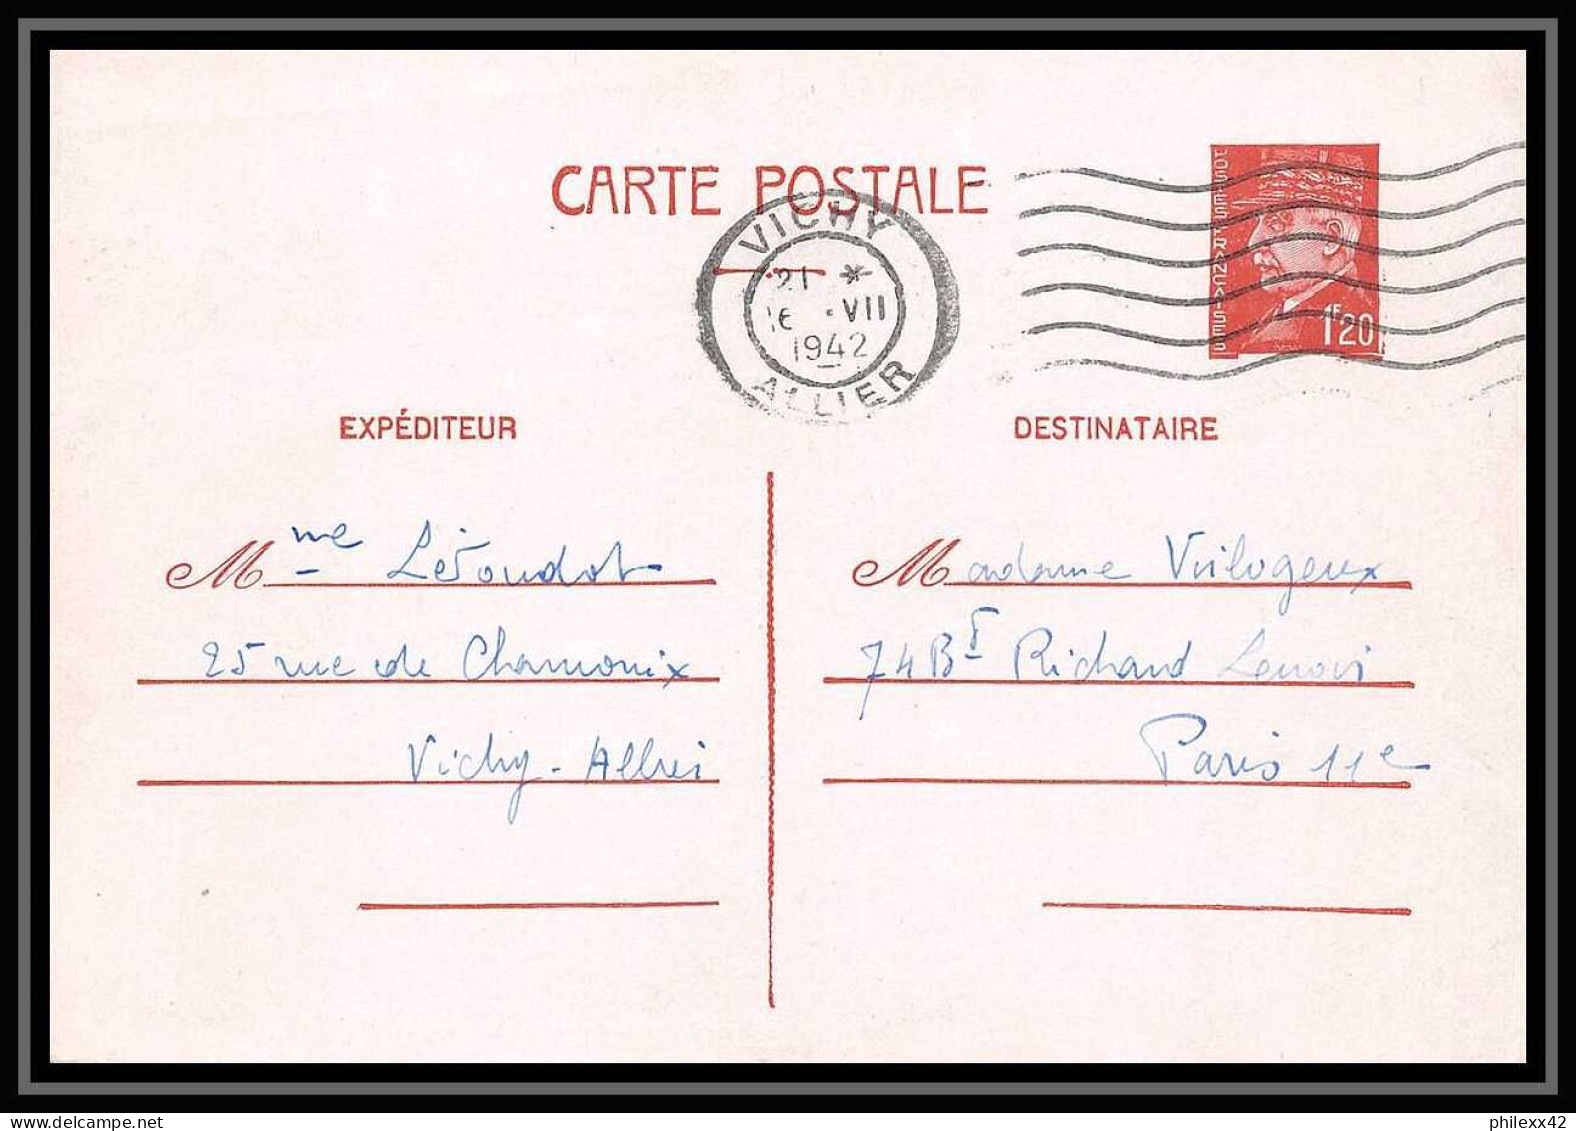 CARTE POSTALE
VICHY
21 *
16 · VII
1942
ALLIER
POSTES FRANÇAISES
1F20
EXPÉDITEUR
Mme
25 rue de Chamonix
Vichy - Allier
DESTINATAIRE
Madame
74 Bd Richard Lenoir
Paris 11e
philexx42